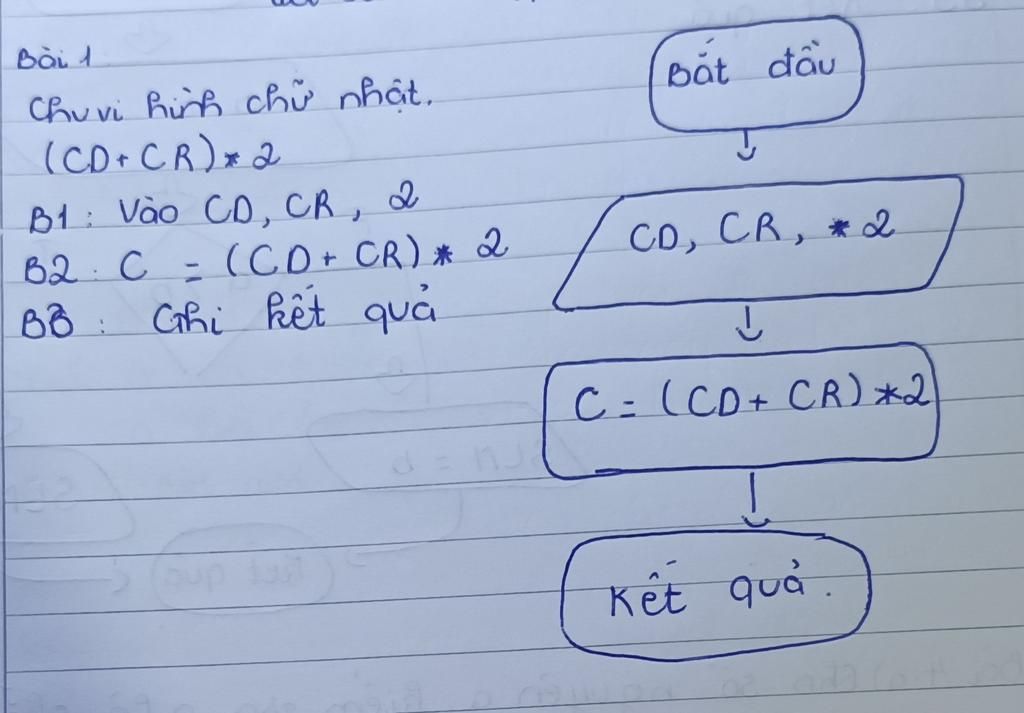 Bài 1
Chu vi hình chữ nhật.
(CD+CR)* 2
B1: Vào CD, CR, 2
B2: C = (CD+ CR) * 2
B3: Ghi kết quả
Bắt đầu
CD, CR, * 2
C = (CD+ CR) *2
Kết quả.